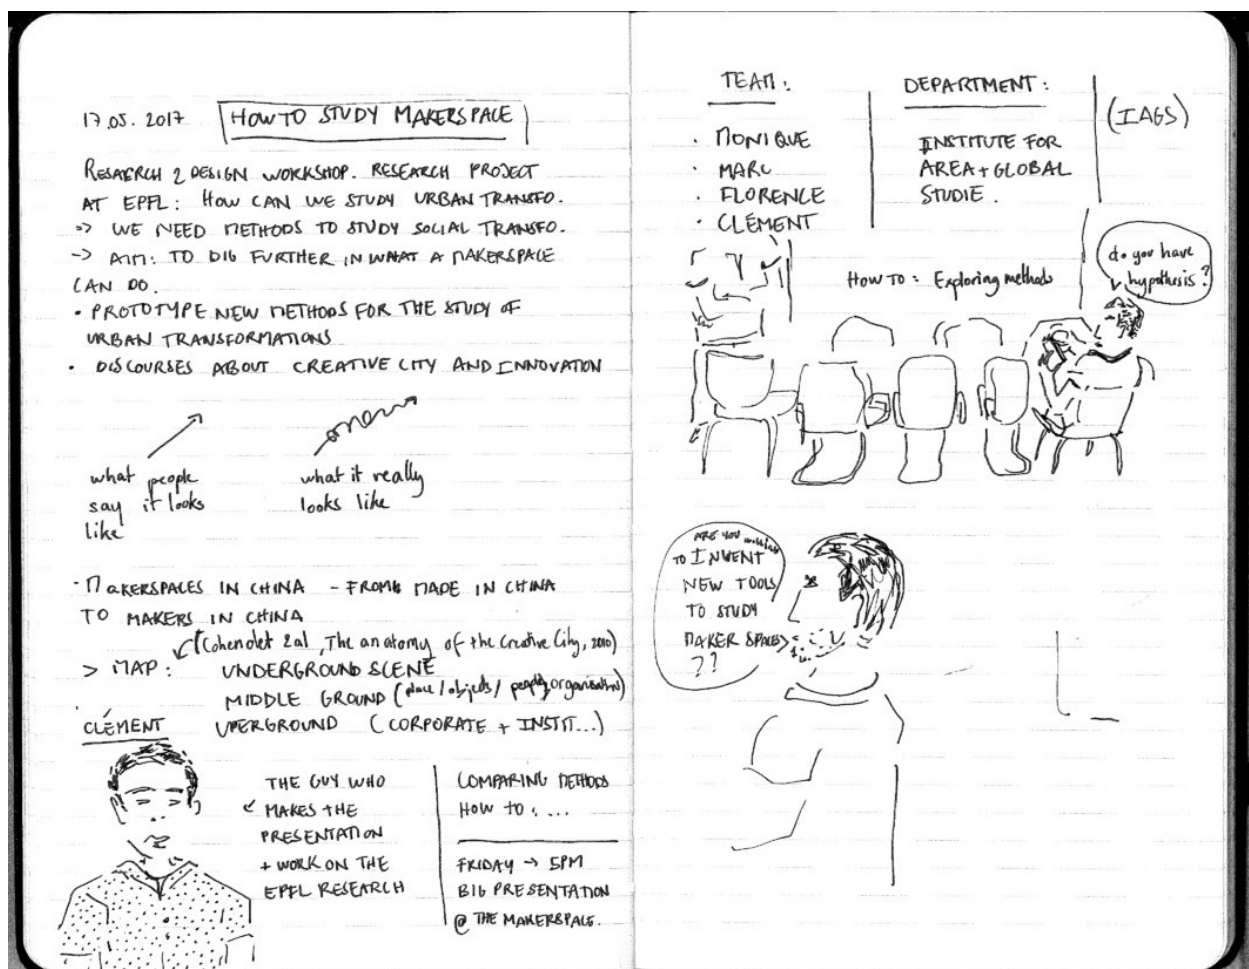 17.05.2017 HOW TO STUDY MAKERSPACE
RESAERCH 2 DESIGN WORKSHOP. RESEARCH PROJECT
AT EPFL: HOW CAN WE STUDY URBAN TRANSFO.
=> WE NEED METHODS TO STUDY SOCIAL TRANSFO.
-> AIM: TO DIG FURTHER IN WHAT A MAKERSPACE
CAN DO.
• PROTOTYPE NEW METHODS FOR THE STUDY OF
URBAN TRANSFORMATIONS
• DISCOURSES ABOUT CREATIVE CITY AND INNOVATION
what people
say it looks
like
what it really
looks like
· MAKERSPACES IN CHINA - FROM MADE IN CHINA
TO MAKERS IN CHINA
(Cohendet 2al, The anatomy of the Creative City, 2010)
> MAP: UNDERGROUND SCENE
MIDDLE GROUND (place/objects/people, organisation)
UPERGROUND (CORPORATE + INSTIT...)
CLÉMENT
THE GUY WHO
MAKES THE
PRESENTATION
+ WORK ON THE
EPFL RESEARCH
COMPARING METHODS
HOW TO: ...
FRIDAY → 5PM
BIG PRESENTATION
@ THE MAKERSPACE.
TEAM:
· MONIQUE
· MARC
· FLORENCE
· CLÉMENT
DEPARTMENT:
INSTITUTE FOR
AREA + GLOBAL
STUDIE.
(IAGS)
HOW TO: Exploring methods
do you have
hypothesis?
ARE YOU
TO INVENT
NEW TOOLS
TO STUDY
MAKER SPACES
??